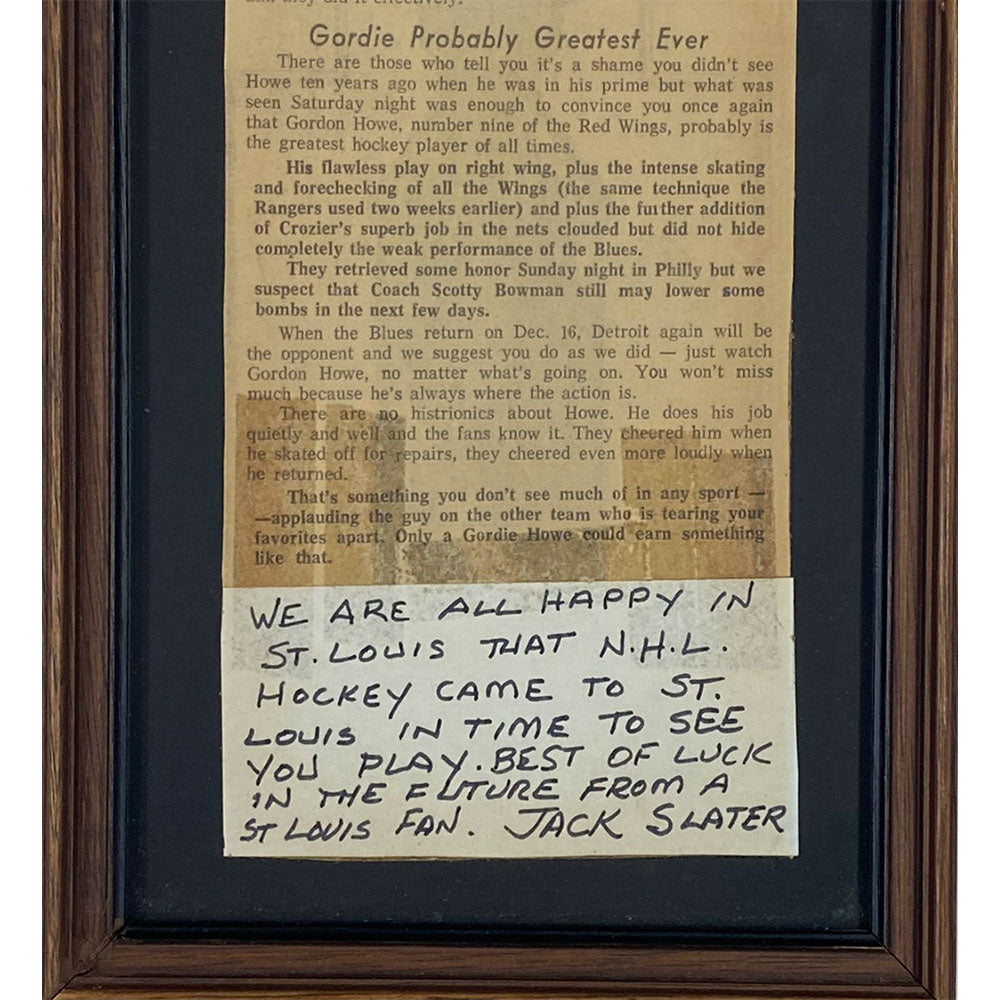 and they did it effectively.
Gordie Probably Greatest Ever
There are those who tell you it's a shame you didn't see
Howe ten years ago when he was in his prime but what was
seen Saturday night was enough to convince you once again
that Gordon Howe, number nine of the Red Wings, probably is
the greatest hockey player of all times.
His flawless play on right wing, plus the intense skating
and forechecking of all the Wings (the same technique the
Rangers used two weeks earlier) and plus the further addition
of Crozier's superb job in the nets clouded but did not hide
completely the weak performance of the Blues.
They retrieved some honor Sunday night in Philly but we
suspect that Coach Scotty Bowman still may lower some
bombs in the next few days.
When the Blues return on Dec. 16, Detroit again will be
the opponent and we suggest you do as we did — just watch
Gordon Howe, no matter what's going on. You won't miss
much because he's always where the action is.
There are no histrionics about Howe. He does his job
quietly and well and the fans know it. They cheered him when
he skated off for repairs, they cheered even more loudly when
he returned.
That's something you don't see much of in any sport —
—applauding the guy on the other team who is tearing your
favorites apart. Only a Gordie Howe could earn something
like that.
WE ARE ALL HAPPY IN
ST. LOUIS THAT N.H.L.
HOCKEY CAME TO ST.
LOUIS IN TIME TO SEE
YOU PLAY. BEST OF LUCK
IN THE FUTURE FROM A
ST LOUIS FAN. JACK SLATER